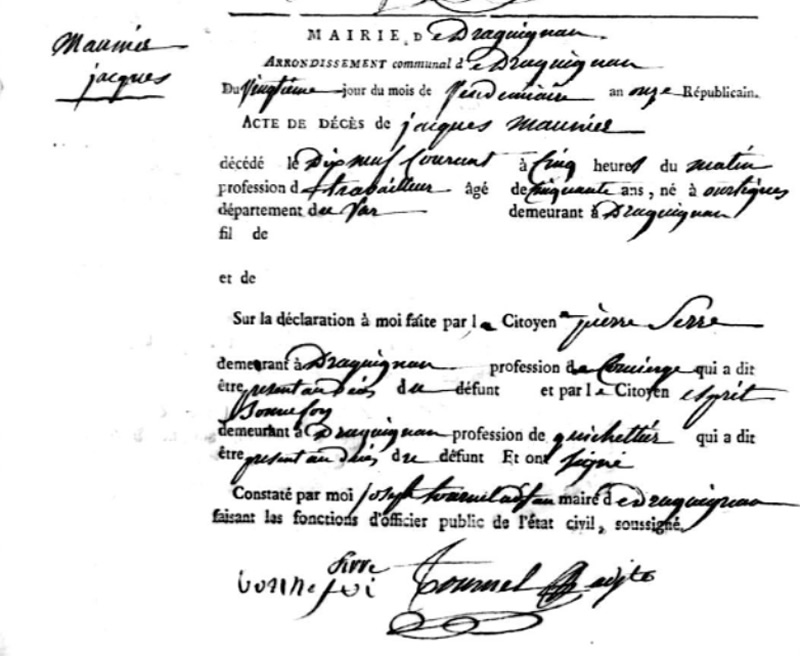 Maunier
jacques
MAIRIE, D e Draguignan
ARRONDISSEMENT communal d e Draguignan
Du vingtieme jour du mois de Vendemiaire an onze Républicain.
ACTE DE DÉCÈS de jacques Maunier
décédé le Dix neuf Courant à Cinq heures du matin
profession d travailleur âgé de cinquante ans, né à
département du Var demeurant à Draguignan
fil de
et de
Sur la déclaration à moi faite par le Citoyen pierre Serre
demeurant à Draguignan profession de Concierge qui a dit
être present au déces du défunt et par le Citoyen esprit
Bonnefoy
demeurant à Draguignan profession de guichettier qui a dit
être present au déces du défunt Et ont signé
Constaté par moi joseph tournel adjt au maire d e Draguignan
faisant les fonctions d'officier public de l'état civil, soussigné.
Serre
bonnefoi Tournel adjt